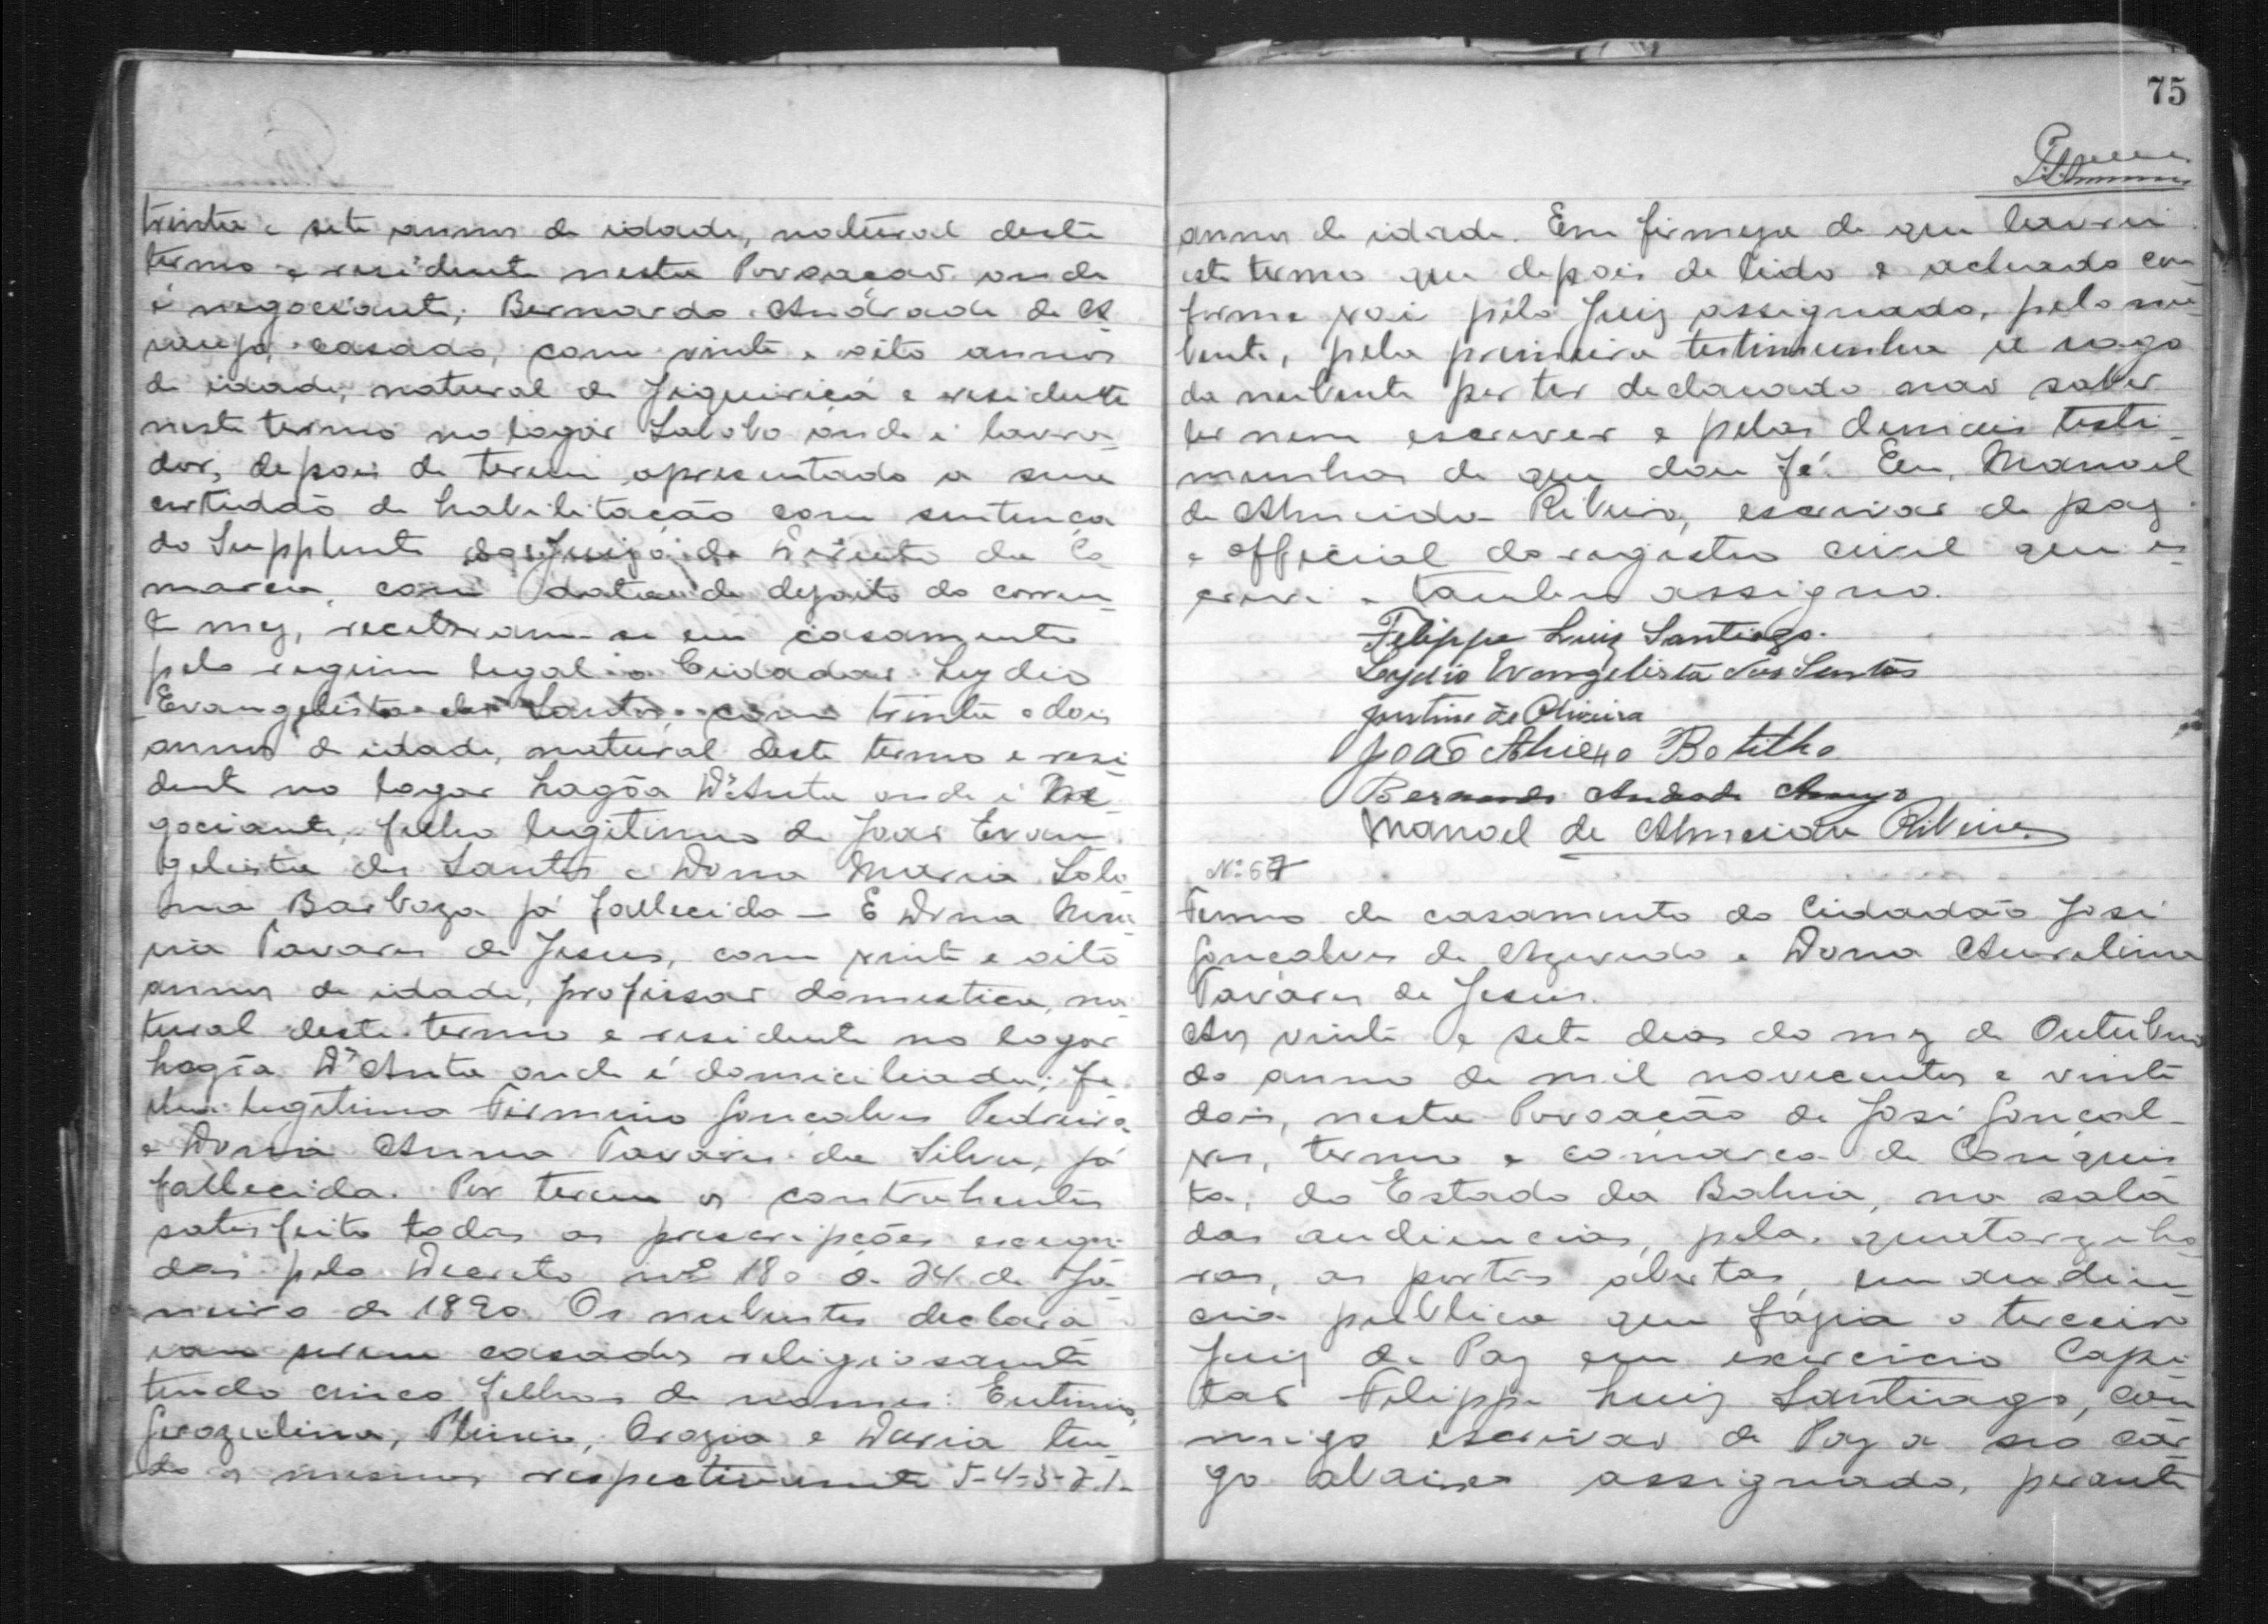 trinta e sete annos de idade, natural deste
termo e residente nesta Povoação onde
é negociante; Bernardo Andrade de A-
raujo, casado, com vinte e oito annos
de idade, natural de Jiquiriçá e residente
neste termo no logar Lobo onde é lavra-
dor, depois de terem apresentado a sua
certidão de habilitação com sentença
do Supplente do Juizo de Direito da Co-
marca, com data de dezoito do corren-
te mez, receberam-se em casamento
pelo regimen legal o Cidadão Lydio
Evangelista dos Santos, com trinta e dois
annos de idade, natural deste termo e resi-
dente no logar Lagôa D'Anta onde é Ne-
gociante, filho legitimo de João Evan-
gelista dos Santos e Dona Maria
Barboza já fallecida — E Dona
Tavares de Jesus, com vinte e oito
annos de idade, profissão domestica, na-
tural deste termo e residente no logar
Lagôa D'Anta onde é domiciliada; fi-
lha legitima Firmino Gonçalves Pedreira
e Dona Anna Tavares da Silva, já
fallecida. Por terem os contrahentes
satisfeito todas as prescripções exegi-
das pelo Decreto nº 180 de 24 de Ja-
neiro de 1890. Os nubentes declara-
ram serem casados religiosamente
tendo cinco filhos de nomes: Eutimio,
Gerozulina, Plinio, Orozia e Daria ten-
do os mesmos respectivamente 5-4-3-2-1-
75
annos de idade. Em firmeza de que lavrei
este termo que depois de lido e achado con-
forme vai pelo Juiz assignado, pelo nu-
bente, pela primeira testimunha a rogo
da nubente por ter declarado não saber
ler nem escrever e pelas demais testi-
munhas de que dou fé. Eu, Manoel
de Almeida Ribeiro, escrivão de paz
e official do registro civil que es-
crevi e tambem assigno.
Felippe Luiz Santiago.
Lydio Evangelista dos Santos
Justino de Oliveira
João Botilho
Bernardo Andrade Araujo
Manoel de Almeida Ribeiro
Nº 67
Termo de casamento do Cidadão José
Gonçalves de Azevedo e Dona Aurelina
Tavares de Jesus.
Aos vinte e sete dias do mez de Outubro
do anno de mil novecentos e vinte
dois, nesta Povoação de José Gonçal-
ves, termo e comarca de Conquis-
ta, do Estado da Bahia, na sala
das audiencias, pelas quatorze ho-
ras, as portas abertas, em audien-
cia publica que fazia o terceiro
Juiz de Paz em exercicio Capi-
tão Filippe Luiz Santiago, com-
migo escrivão de Paz a seo car-
go abaixo assignado, perante